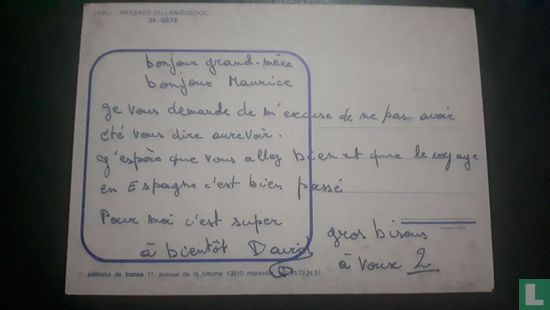 PAYSAGE DU LANGUEDOC
34 - SETE
bonjour grand-mère
bonjour Maurice
je vous demande de m'excuse de ne pas avoir
été vous dire aurevoir.
j'espère que vous allez bien et que le voyage
en Espagne c'est bien passé
Pour moi c'est super
à bientôt David
gros bisous
à voux 2
éditions de france 11, avenue de la timone 13010 marseille
catawiki